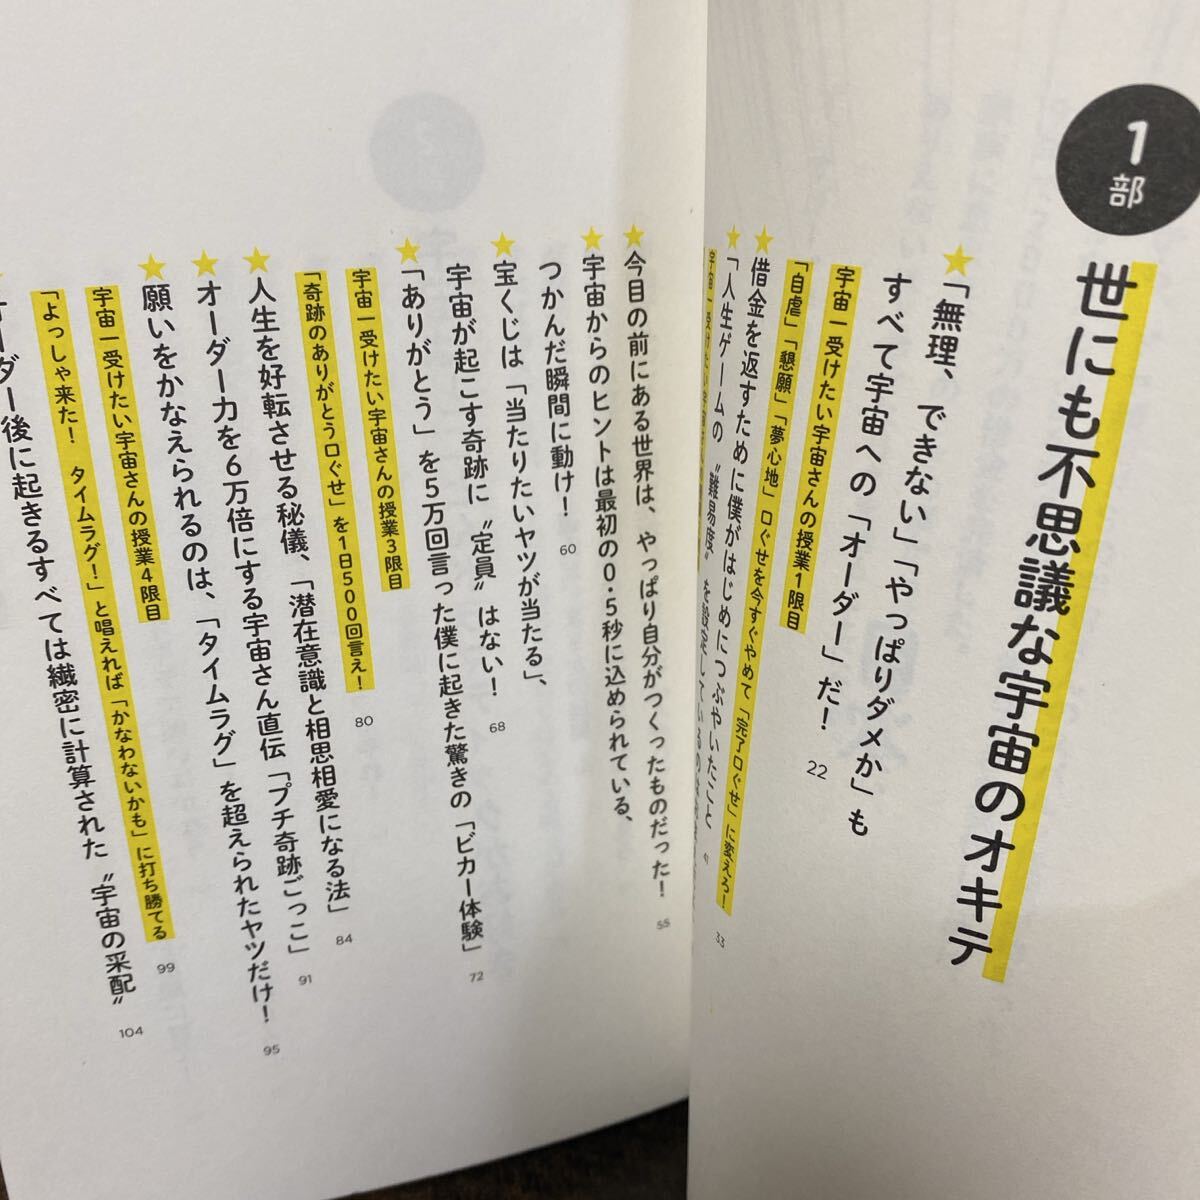 1部
世にも不思議な宇宙のオキテ
★「無理、できない」「やっぱりダメか」も
すべて宇宙への「オーダー」だ! 22
宇宙一受けたい宇宙さんの授業1限目
「自虐」「懇願」「夢心地」口ぐせを今すぐやめて「完了口ぐせ」に変えろ! 33
★借金を返すために僕がはじめにつぶやいたこと 41
★「人生ゲームの〝難易度〟を設定しているのは
宇宙一受けたい宇宙さん
★今目の前にある世界は、やっぱり自分がつくったものだった! 55
★宇宙からのヒントは最初の0・5秒に込められている、
つかんだ瞬間に動け! 60
★宝くじは「当たりたいヤツが当たる」、
宇宙が起こす奇跡に〝定員〟はない! 68
★「ありがとう」を5万回言った僕に起きた驚きの「ビカー体験」 72
宇宙一受けたい宇宙さんの授業3限目
「奇跡のありがとう口ぐせ」を1日500回言え! 80
★人生を好転させる秘儀、「潜在意識と相思相愛になる法」 84
★オーダー力を6万倍にする宇宙さん直伝「プチ奇跡ごっこ」 91
★願いをかなえられるのは、「タイムラグ」を超えられたヤツだけ! 95
宇宙一受けたい宇宙さんの授業4限目
「よっしゃ来た! タイムラグ!」と唱えれば「かなわないかも」に打ち勝てる 99
オーダー後に起きるすべては繊密に計算された〝宇宙の采配〟 104